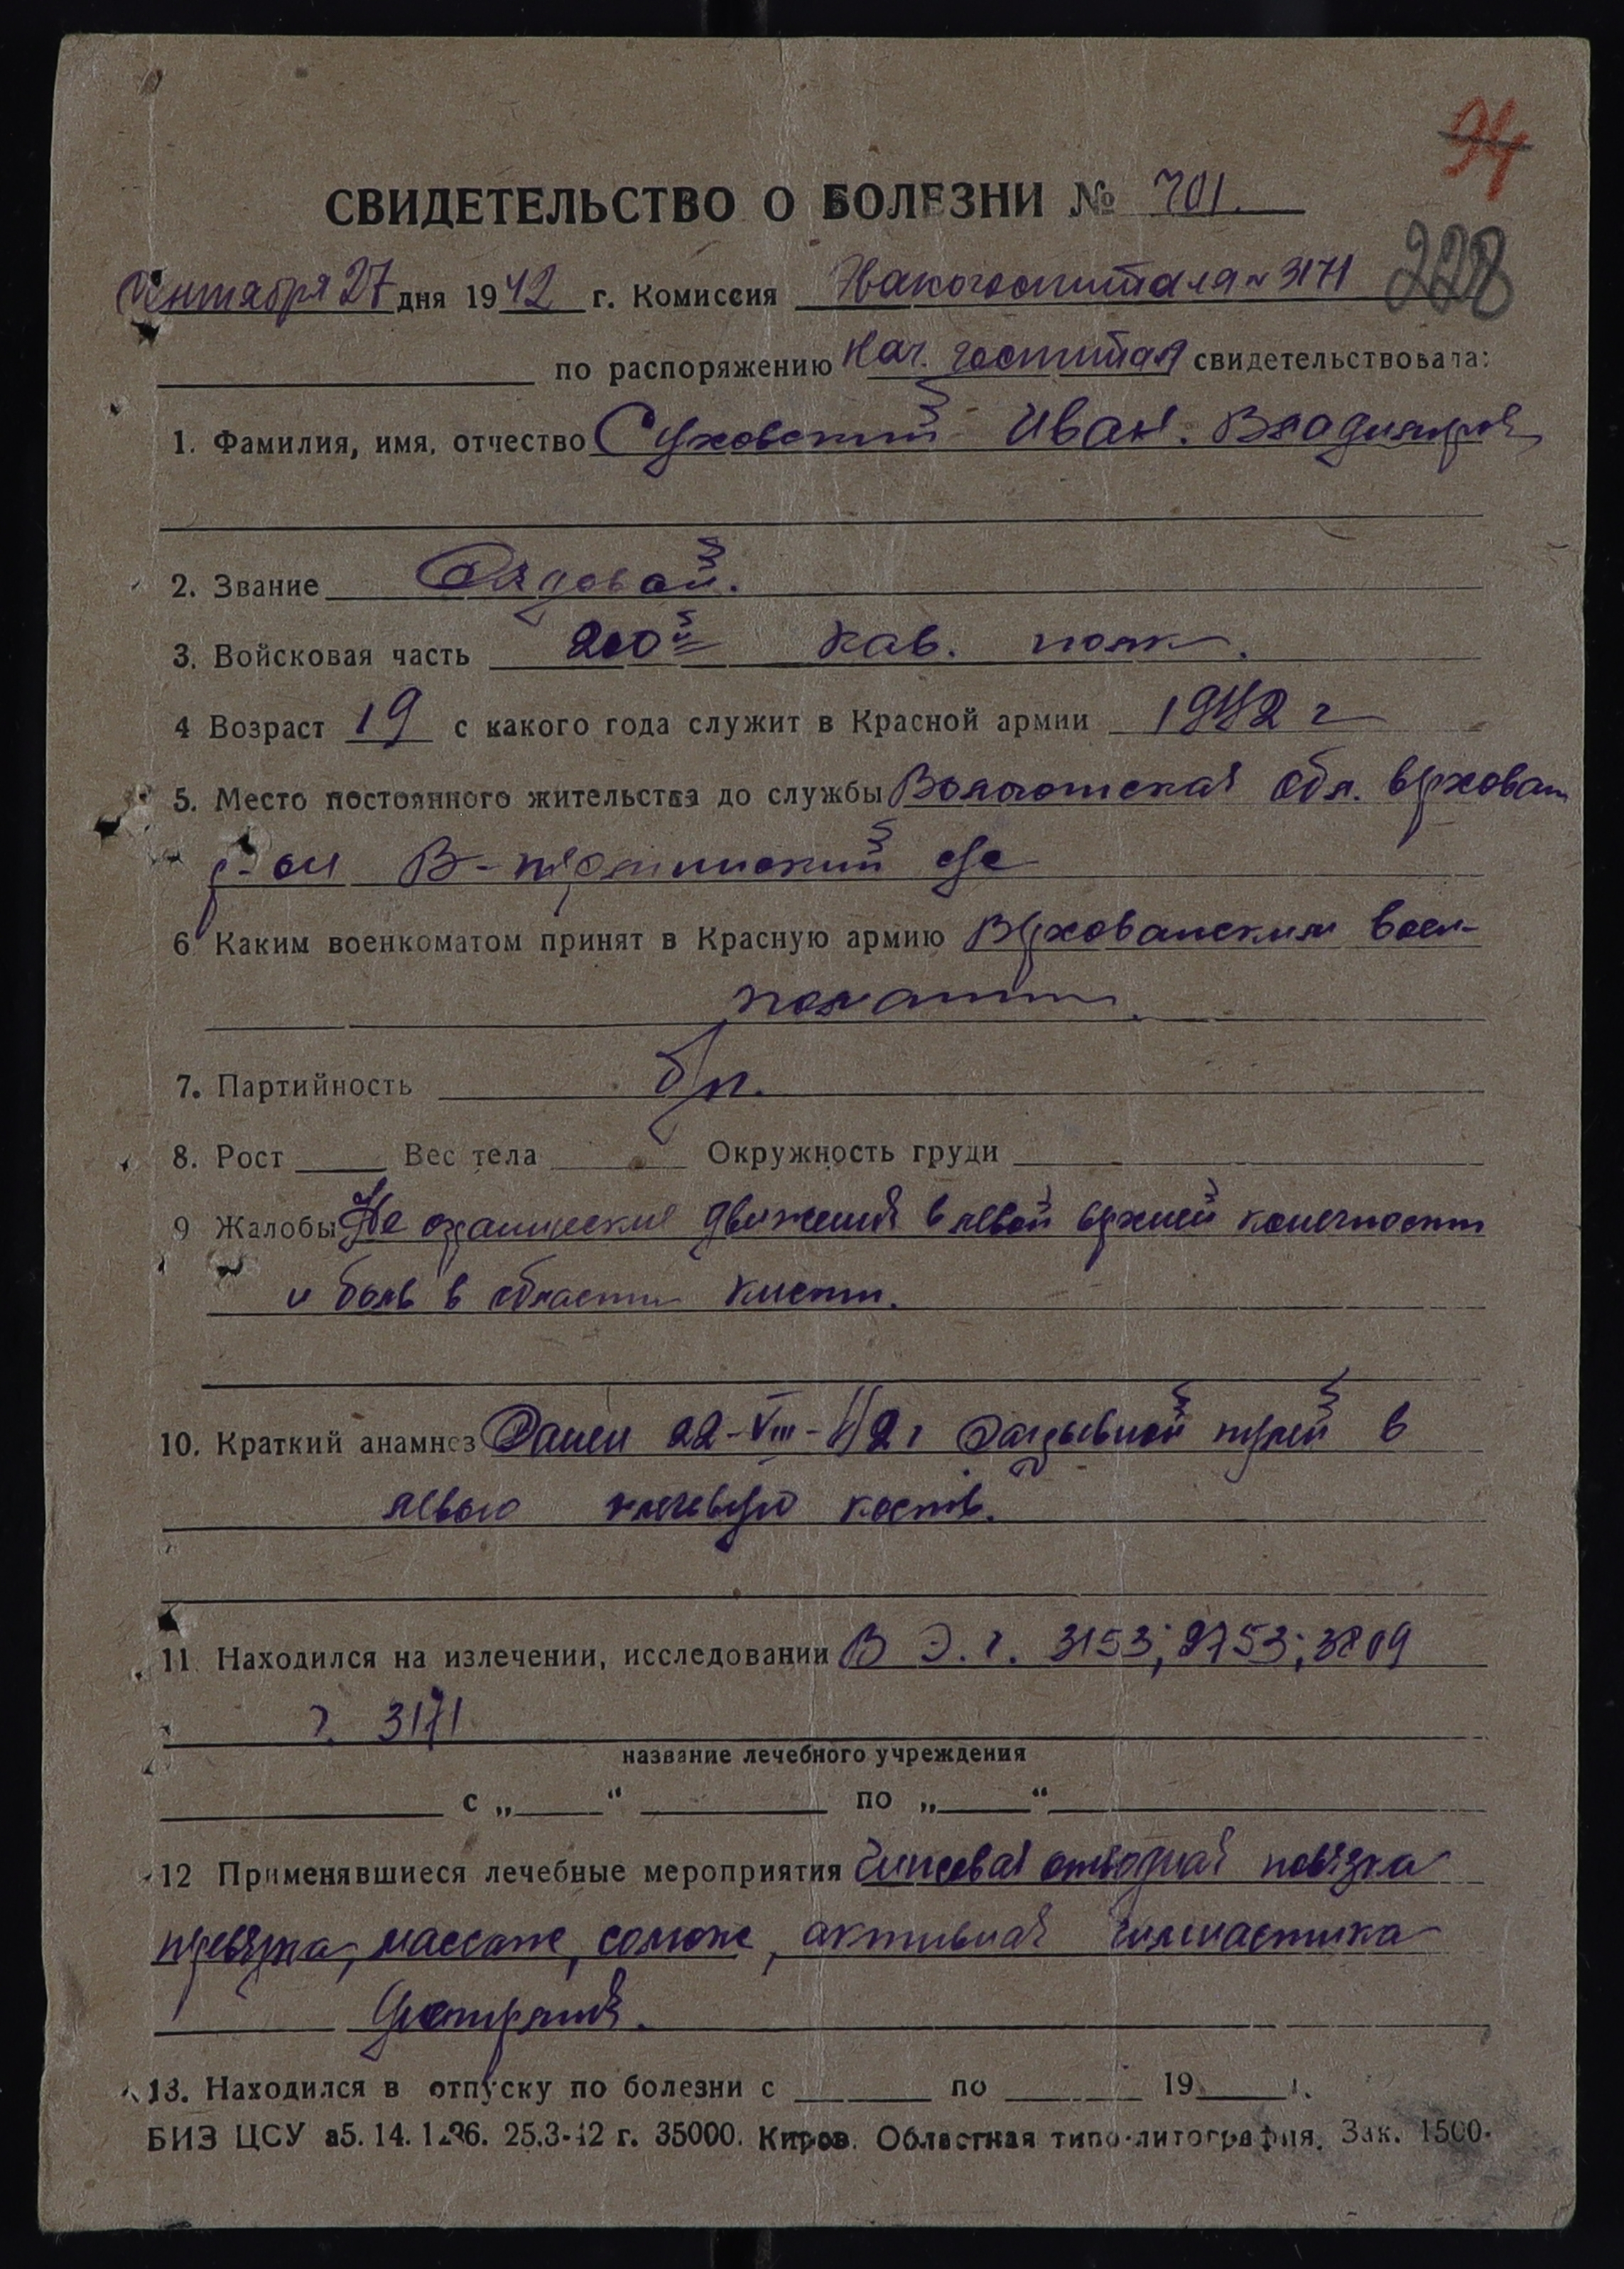 94
СВИДЕТЕЛЬСТВО О БОЛЕЗНИ № 701.
228
Сентября 27 дня 1942 г. Комиссия Эвакогоспиталя № 3171
по распоряжению Нач. госпиталя свидетельствовала:
1. Фамилия, имя, отчество Суховский Иван. Владимиров
2. Звание Рядовой.
3. Войсковая часть 200й кав. полк.
4 Возраст 19 с какого года служит в Красной армии 1942 г
5. Место постоянного жительства до службы Вологотская обл. Верховаж
р-он В- с/с
6 Каким военкоматом принят в Красную армию Верховажским воен-
коматом.
7. Партийность б/п.
8. Рост Вес тела Окружность груди
9 Жалобы движения в левой верхней конечности
и боль в области кисти.
10. Краткий анамнез Ранен 22-VIII-42 г Разрывной пулей в
левую плечевую кость.
11. Находился на излечении, исследовании В Э.г. 3153; 2753; 3809
г. 3171
название лечебного учреждения
с „ “ по „ “
12 Применявшиеся лечебные мероприятия Гипсовая отводная повязка
перевязка, массаж, солюкс, активная гимнастика
13. Находился в отпуску по болезни с по 19 г.
БИЗ ЦСУ а5. 14. 1296. 25.3-42 г. 35000. Киров. Областная типо-литография. Зак. 1500.